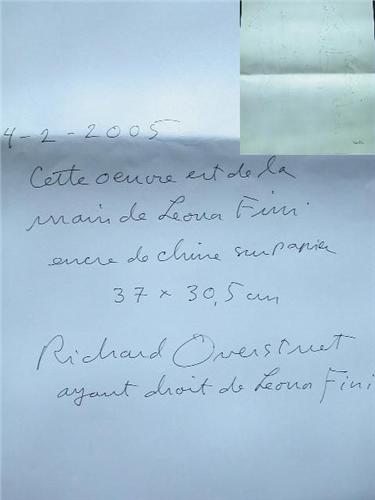 4-2-2005
Cette oeuvre est de la
main de Leonor Fini
encre de chine sur papier
37 x 30,5 cm
Richard Overstreet
ayant droit de Leonor Fini